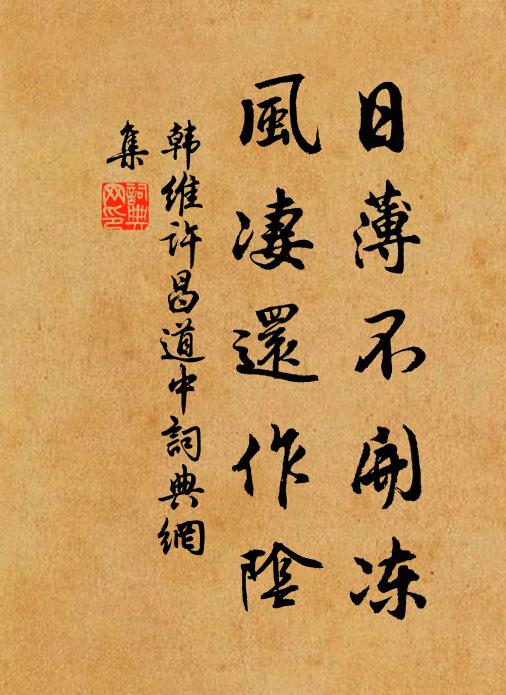 日薄不開冻
風凄還作陰
韩维许昌道中詞典網
集
詞典网印